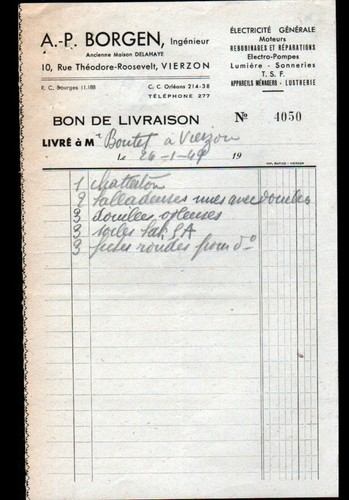 A.-P. BORGEN, Ingénieur
Ancienne Maison DELAHAYE
10, Rue Théodore-Roosevelt, VIERZON
R. C. Bourges 11.188
C. C. Orléans 214-38
TÉLÉPHONE 277
ÉLECTRICITÉ GÉNÉRALE
Moteurs
REBOBINAGES ET RÉPARATIONS
Electro-Pompes
Lumière - Sonneries
T. S. F.
APPAREILS MÉNAGERS - LUSTRERIE
BON DE LIVRAISON No 4050
LIVRÉ à Mr Boutet à Vierzon
Le 26-1-49 19
1 chatterton
2 balladeuses nues avec douilles
3 douilles
3
3 fiches rondes pour do